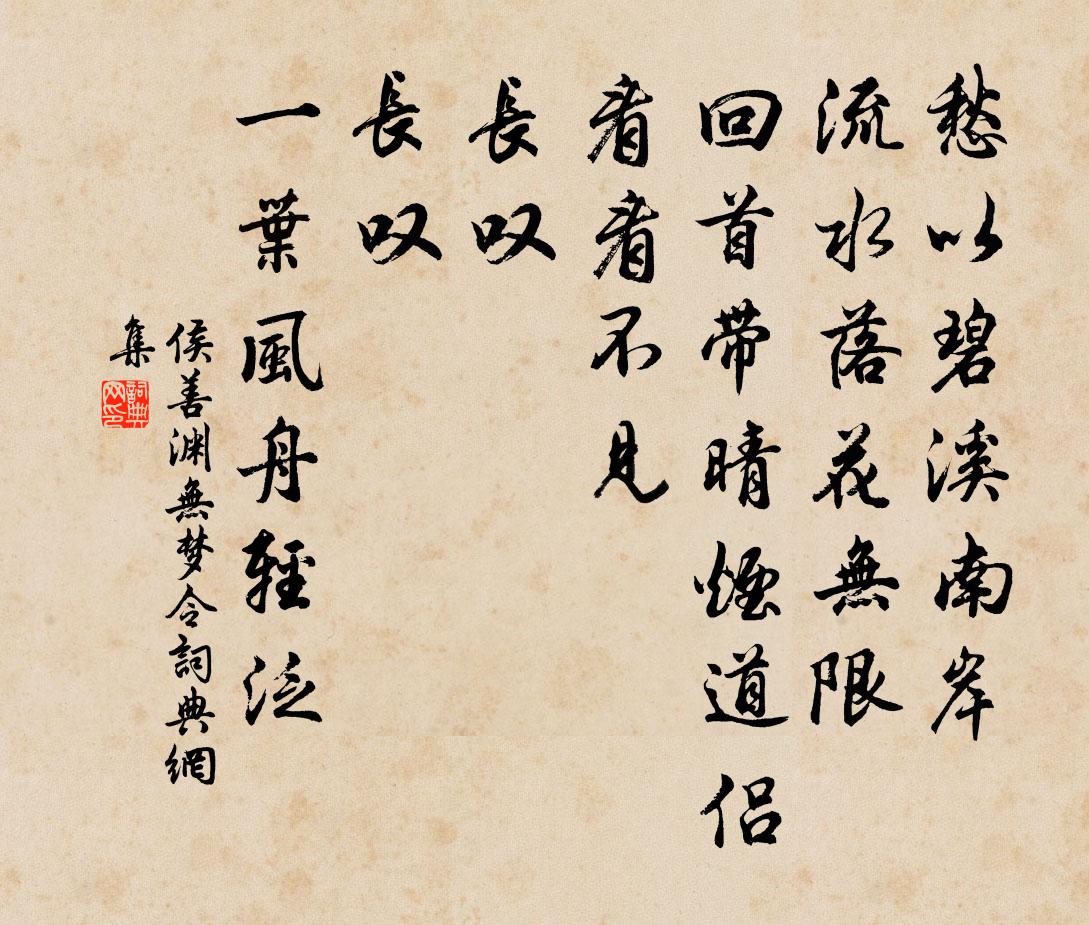 愁以碧溪南岸
流水落花無限
回首帶晴煙道侶
看看不見
長叹
長叹
一葉風舟輕泛
侯善渊無梦令詞典網
集
詞典网印